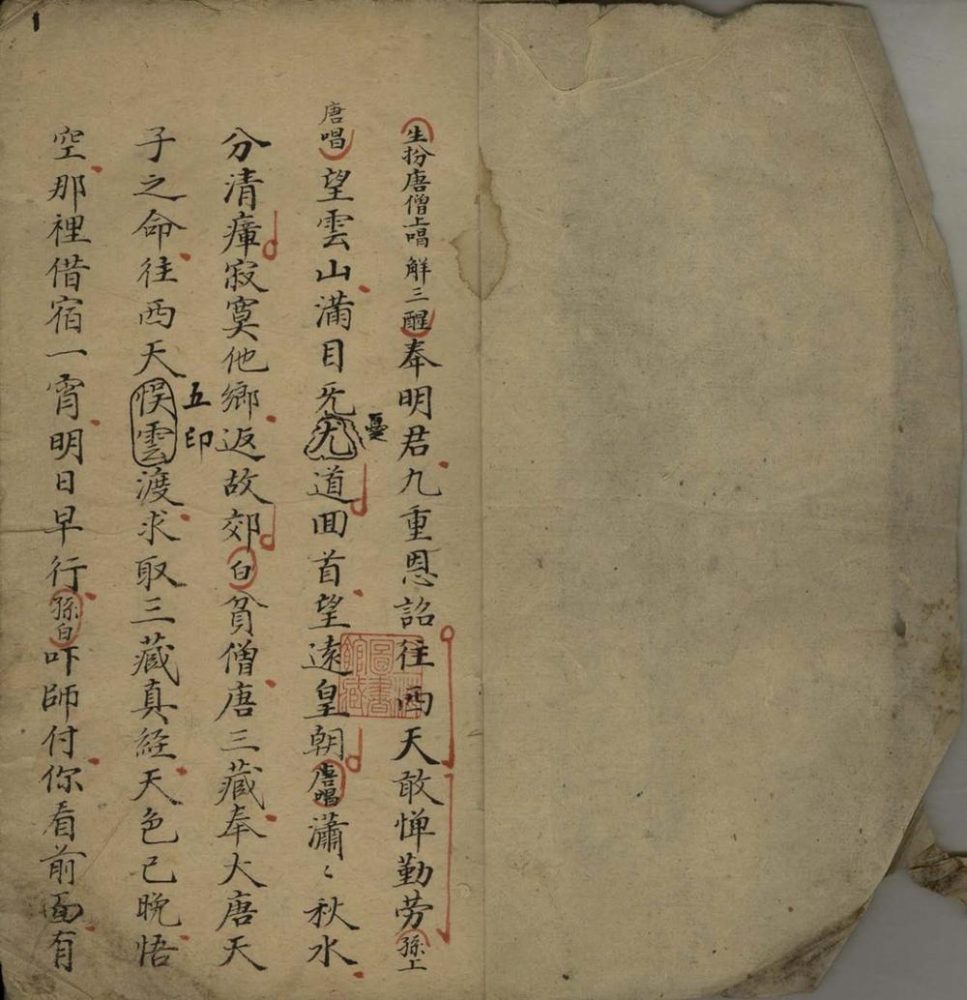 生扮唐僧上唱 解三醒 奉明君九重恩詔往西天敢憚勤劳孫上
唐唱 望雲山滿目旡尤道囬首望遠皇朝唐唱瀟〻秋水
憂
分清瘴寂寞他鄉返故郊白貧僧唐三藏奉大唐天
五印
子之命往西天悮雲渡求取三藏真経天色已晩悟
空那裡借宿一宵明日早行孫白吓師付你看前面有
圖書